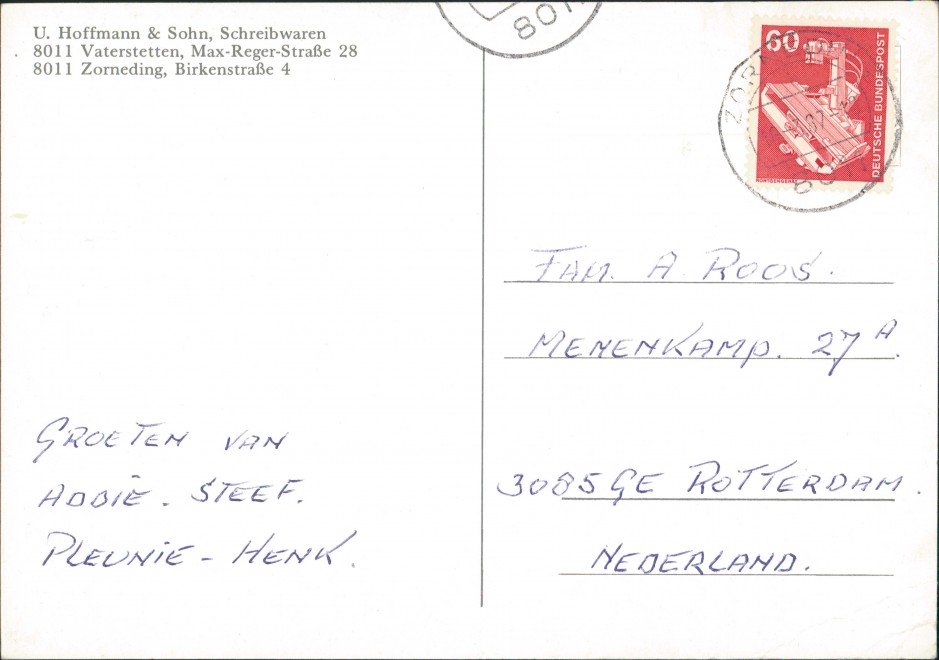 U. Hoffmann & Sohn, Schreibwaren
8011 Vaterstetten, Max-Reger-Straße 28
8011 Zorneding, Birkenstraße 4
801
60
DEUTSCHE BUNDESPOST
RÖNTGENGERÄT
FAM. A ROOS.
MENENKAMP. 27 A.
3085 GE ROTTERDAM.
NEDERLAND.
GROETEN VAN
ADDIË. STEEF.
PLEUNIE - HENK.